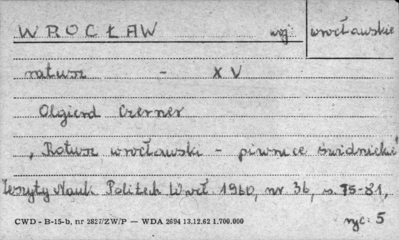 WROCŁAW woj. wrocławskie
ratusz - XV
Olgierd Czerner
"Ratusz wrocławski - piwnice świdnickie"
Zeszyty Nauk. Politech. Wrocł. 1960, nr. 36, s. 75-81,
ryc. 5
CWD - B-15-b, nr 2827/ZW/P — WDA 2694 13.12.62 1.700.000